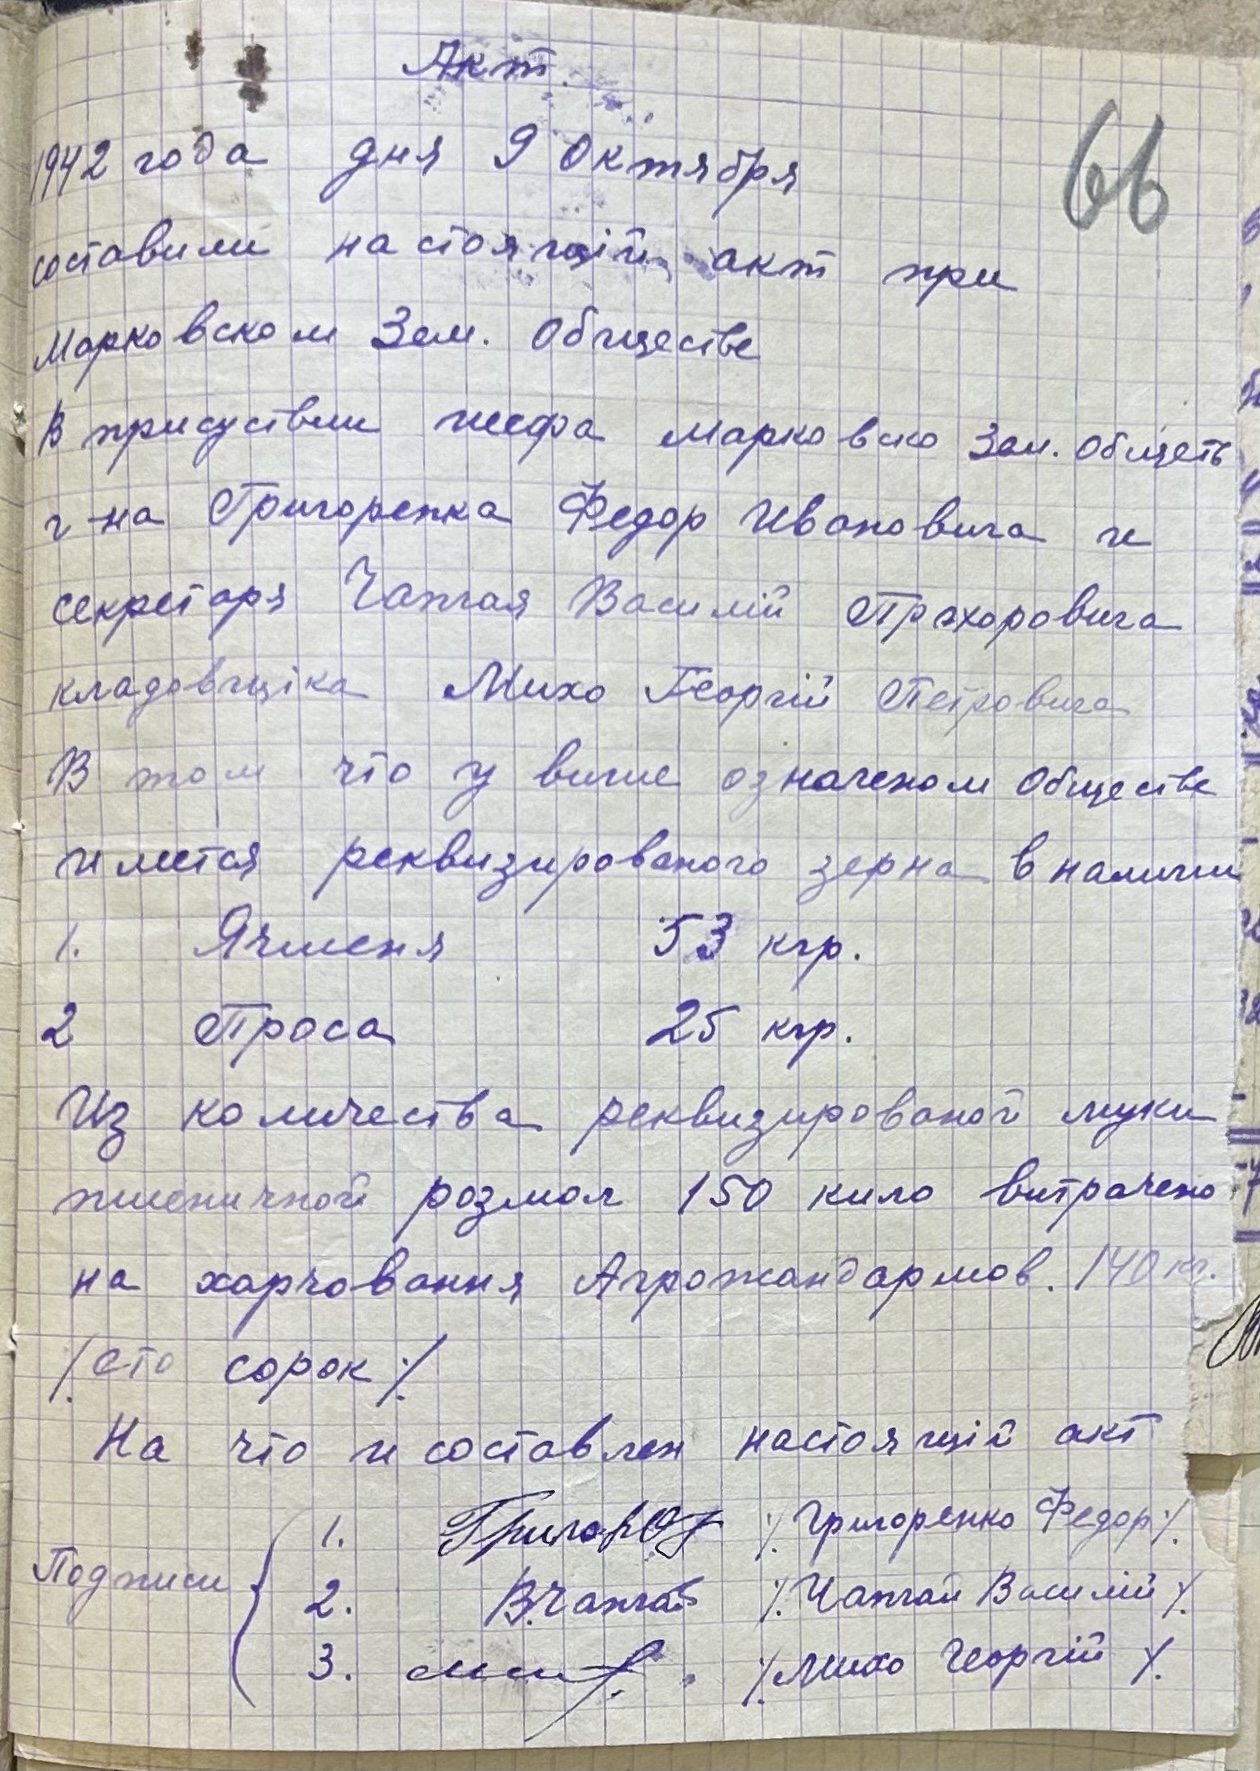 Акт.
66
1942 года дня 9 Октября
составили настоящій акт при
Марковском Зем. Обществе
В присуствии шефа Марковско Зем. общеть
г-на Григоренка Федор Ивановича и
секретаря Чапчая Василій Прохоровича
кладовщіка Михо Георгій Петровича
В том что у више означеном обществе
имется реквизированого зерна в наличии
1. Ячменя 53 кгр.
2 Проса 25 кгр.
Из количества реквизированой муки
пшеничной розмол 150 кило витрачено
на харчовання Агрожандармов. 140 кг.
/. сто сорок ./.
На что и составлен настоящій акт
Подписи
1. /. Григоренко Федор /.
2. В.Чапчай /. Чапчай Василій /.
3. /. Михо Георгій /.